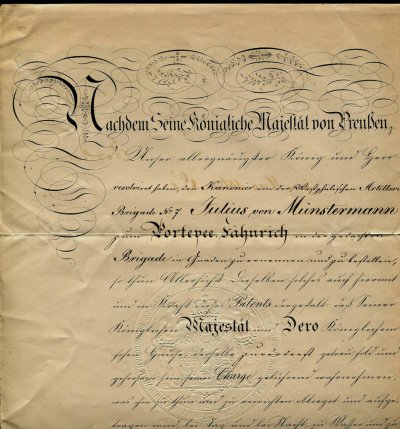 Nachdem Seine Königliche Majestät von Preußen,
Unser allergnädigster König und Herr
resolvirt haben, den Kanonier in der Westphälischen Artillerie
Brigade № 7 Julius von Münstermann
zum Portepee-Fähnrich in der gedachten
Brigade in Gnaden zu ernennen und zu bestellen,
so thun Allerhöchst Dieselben solches auch hiermit
und in Kraft dieses Patents dergestalt daß Seiner
Königlichen Majestät und Dero Königlichem
hold und
gehorsam sein seine Charge gebührend wahrnehmen,
was ihm zu thun und zu verrichten oblieget und aufge-
tragen wird, bei Tag und bei Nacht, zu Wasser und zu